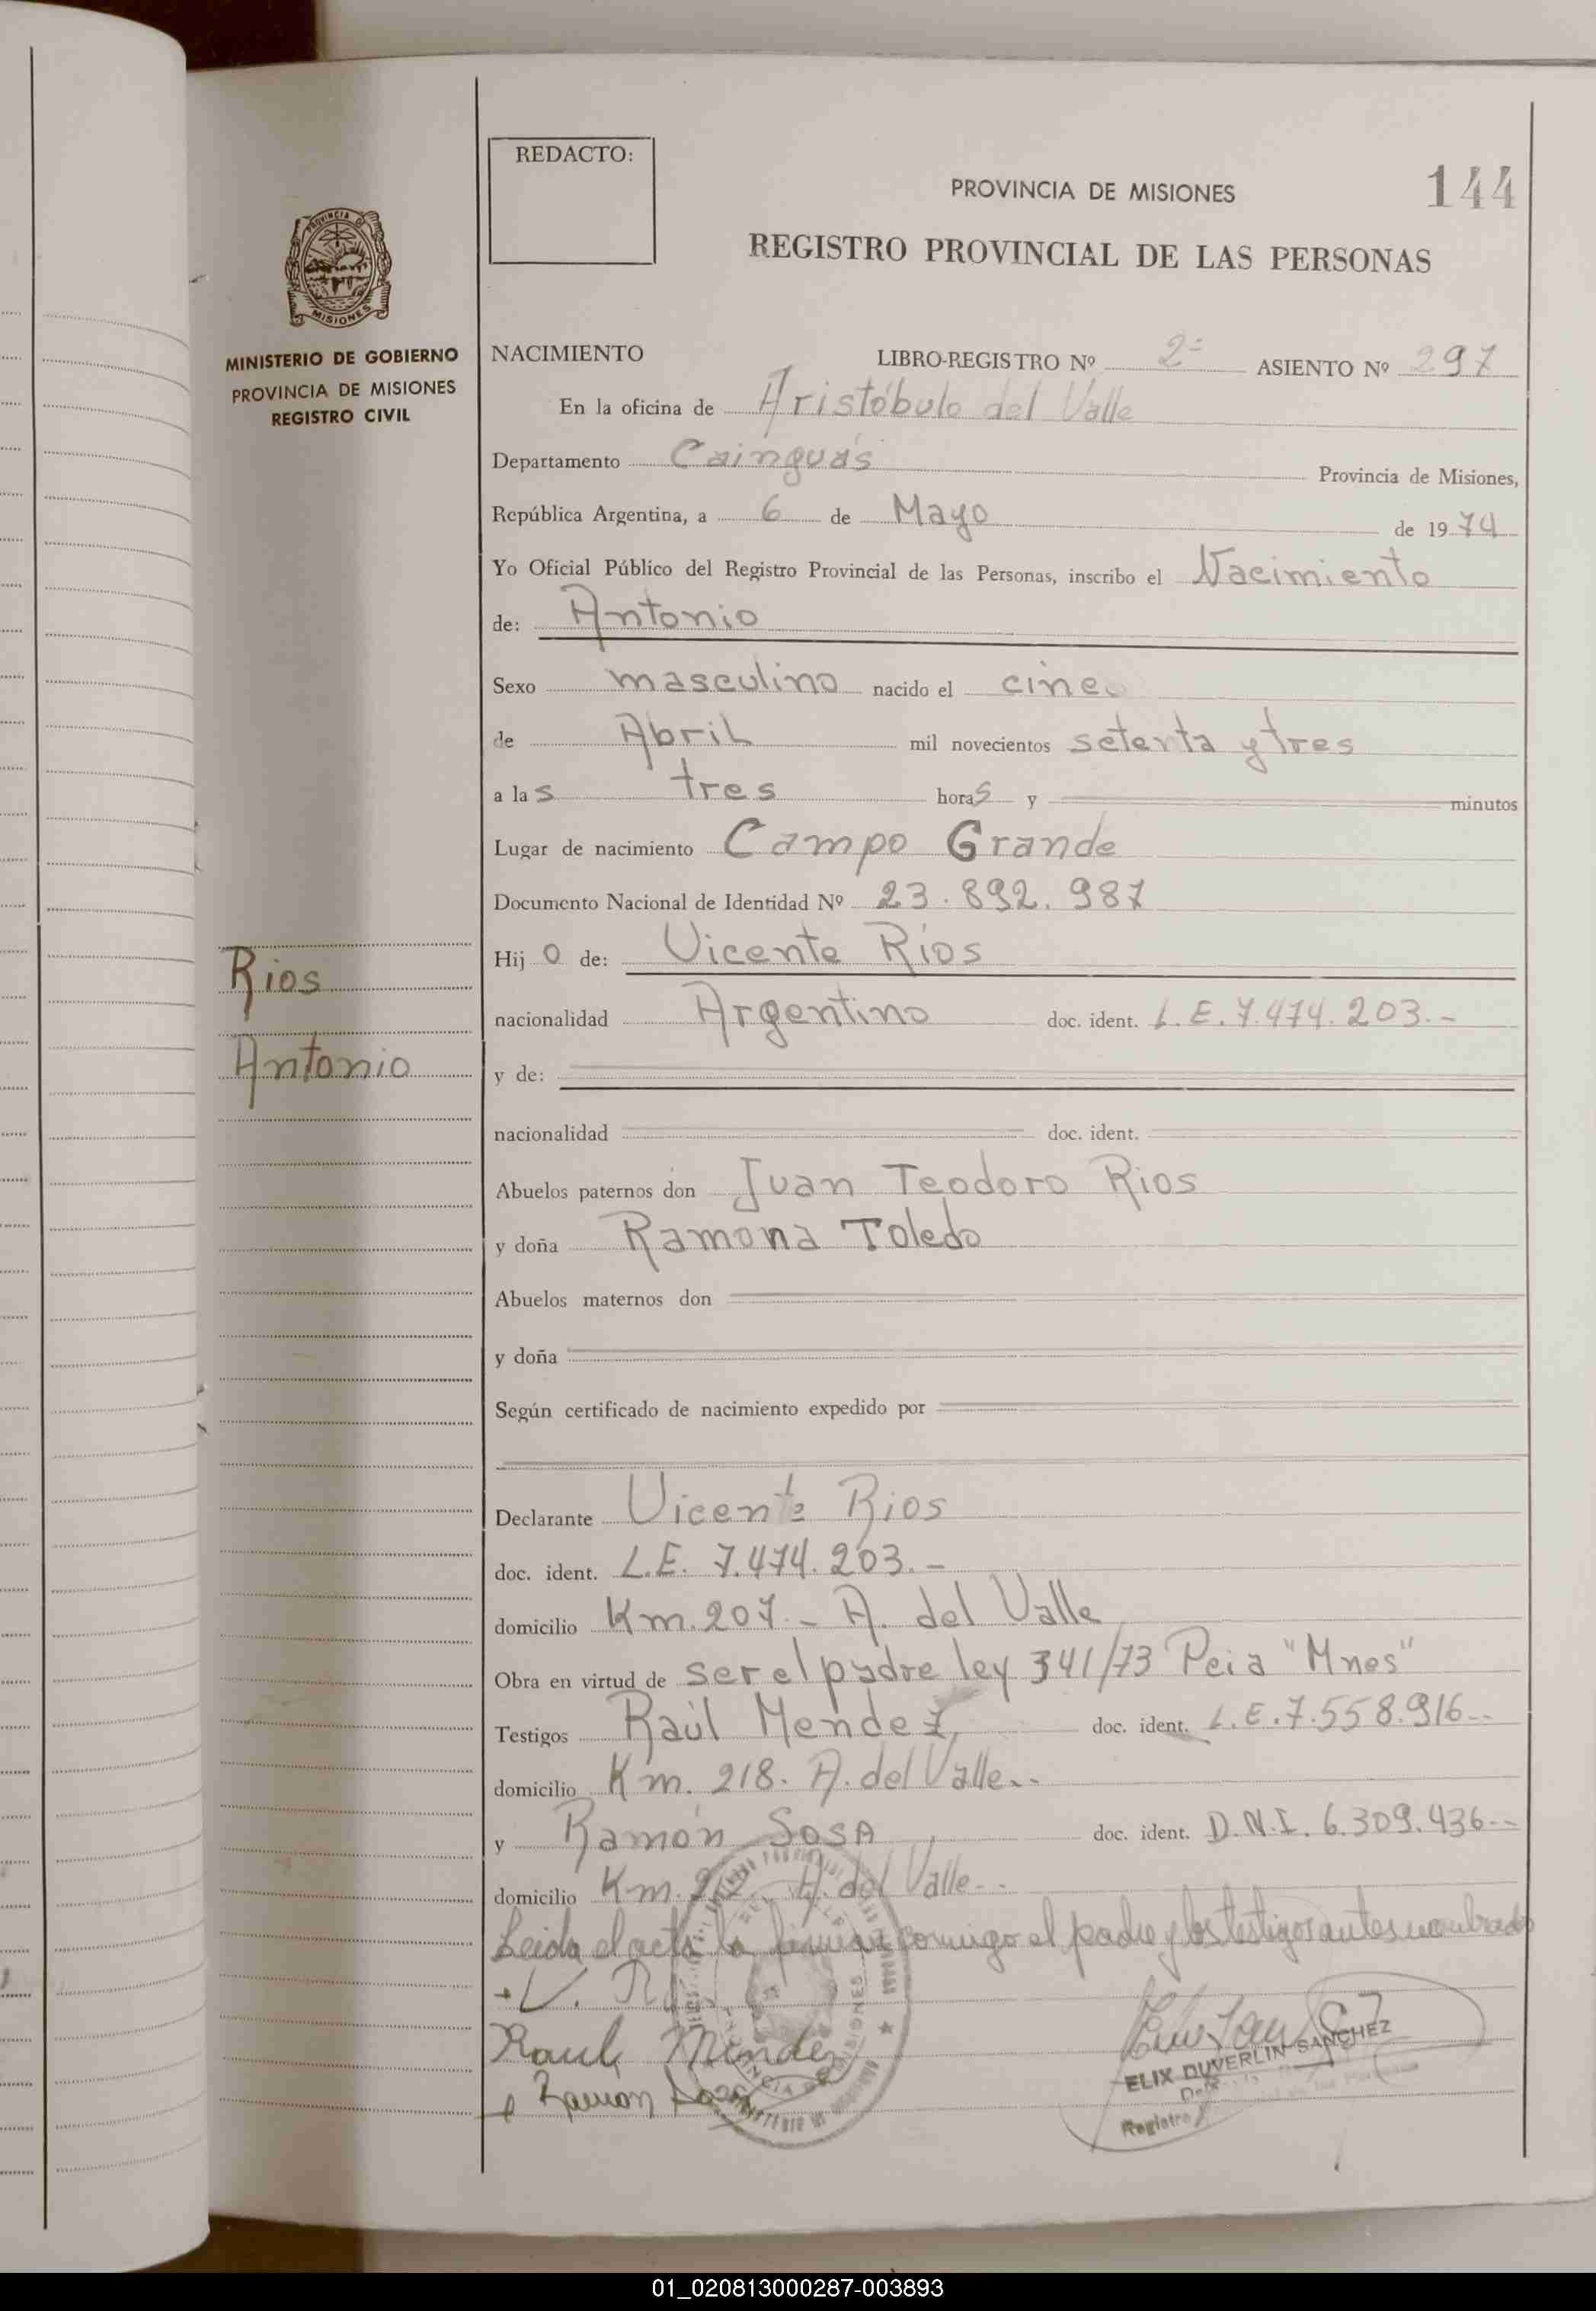 REDACTO:
PROVINCIA DE MISIONES
144
REGISTRO PROVINCIAL DE LAS PERSONAS
PROVINCIA DE
MISIONES
MINISTERIO DE GOBIERNO
PROVINCIA DE MISIONES
REGISTRO CIVIL
Rios
Antonio
NACIMIENTO LIBRO-REGISTRO Nº 2º ASIENTO Nº 297
En la oficina de Aristóbulo del Valle
Departamento Cainguás Provincia de Misiones,
República Argentina, a 6 de Mayo de 1974
Yo Oficial Público del Registro Provincial de las Personas, inscribo el Nacimiento
de: Antonio
Sexo masculino nacido el
de Abril mil novecientos setenta y tres
a las tres horas y minutos
Lugar de nacimiento Campo Grande
Documento Nacional de Identidad Nº 23.892.987
Hijo de: Vicente Ríos
nacionalidad Argentino doc. ident. L.E. 7.474.203.-
y de:
nacionalidad doc. ident.
Abuelos paternos don Juan Teodoro Rios
y doña Ramona Toledo
Abuelos maternos don
y doña
Según certificado de nacimiento expedido por
Declarante Vicente Rios
doc. ident. L.E. 7.474.203.-
domicilio Km. 207.- A. del Valle
Obra en virtud de ser el padre ley 341/73 Pcia "Mnes"
Testigos Raúl Mendez, doc. ident. L.E. 7.558.916--
domicilio Km. 218. A. del Valle--
y Ramón Sosa doc. ident. D.N.I. 6.309.436--
domicilio Km. A. del Valle--
Leida el acta la firman conmigo el padre y los testigos antes nombrados
V. R
Raul Mendez
Ramon Sosa
ELIX DUVERLIN SANCHEZ
Registro
01_020813000287-003893